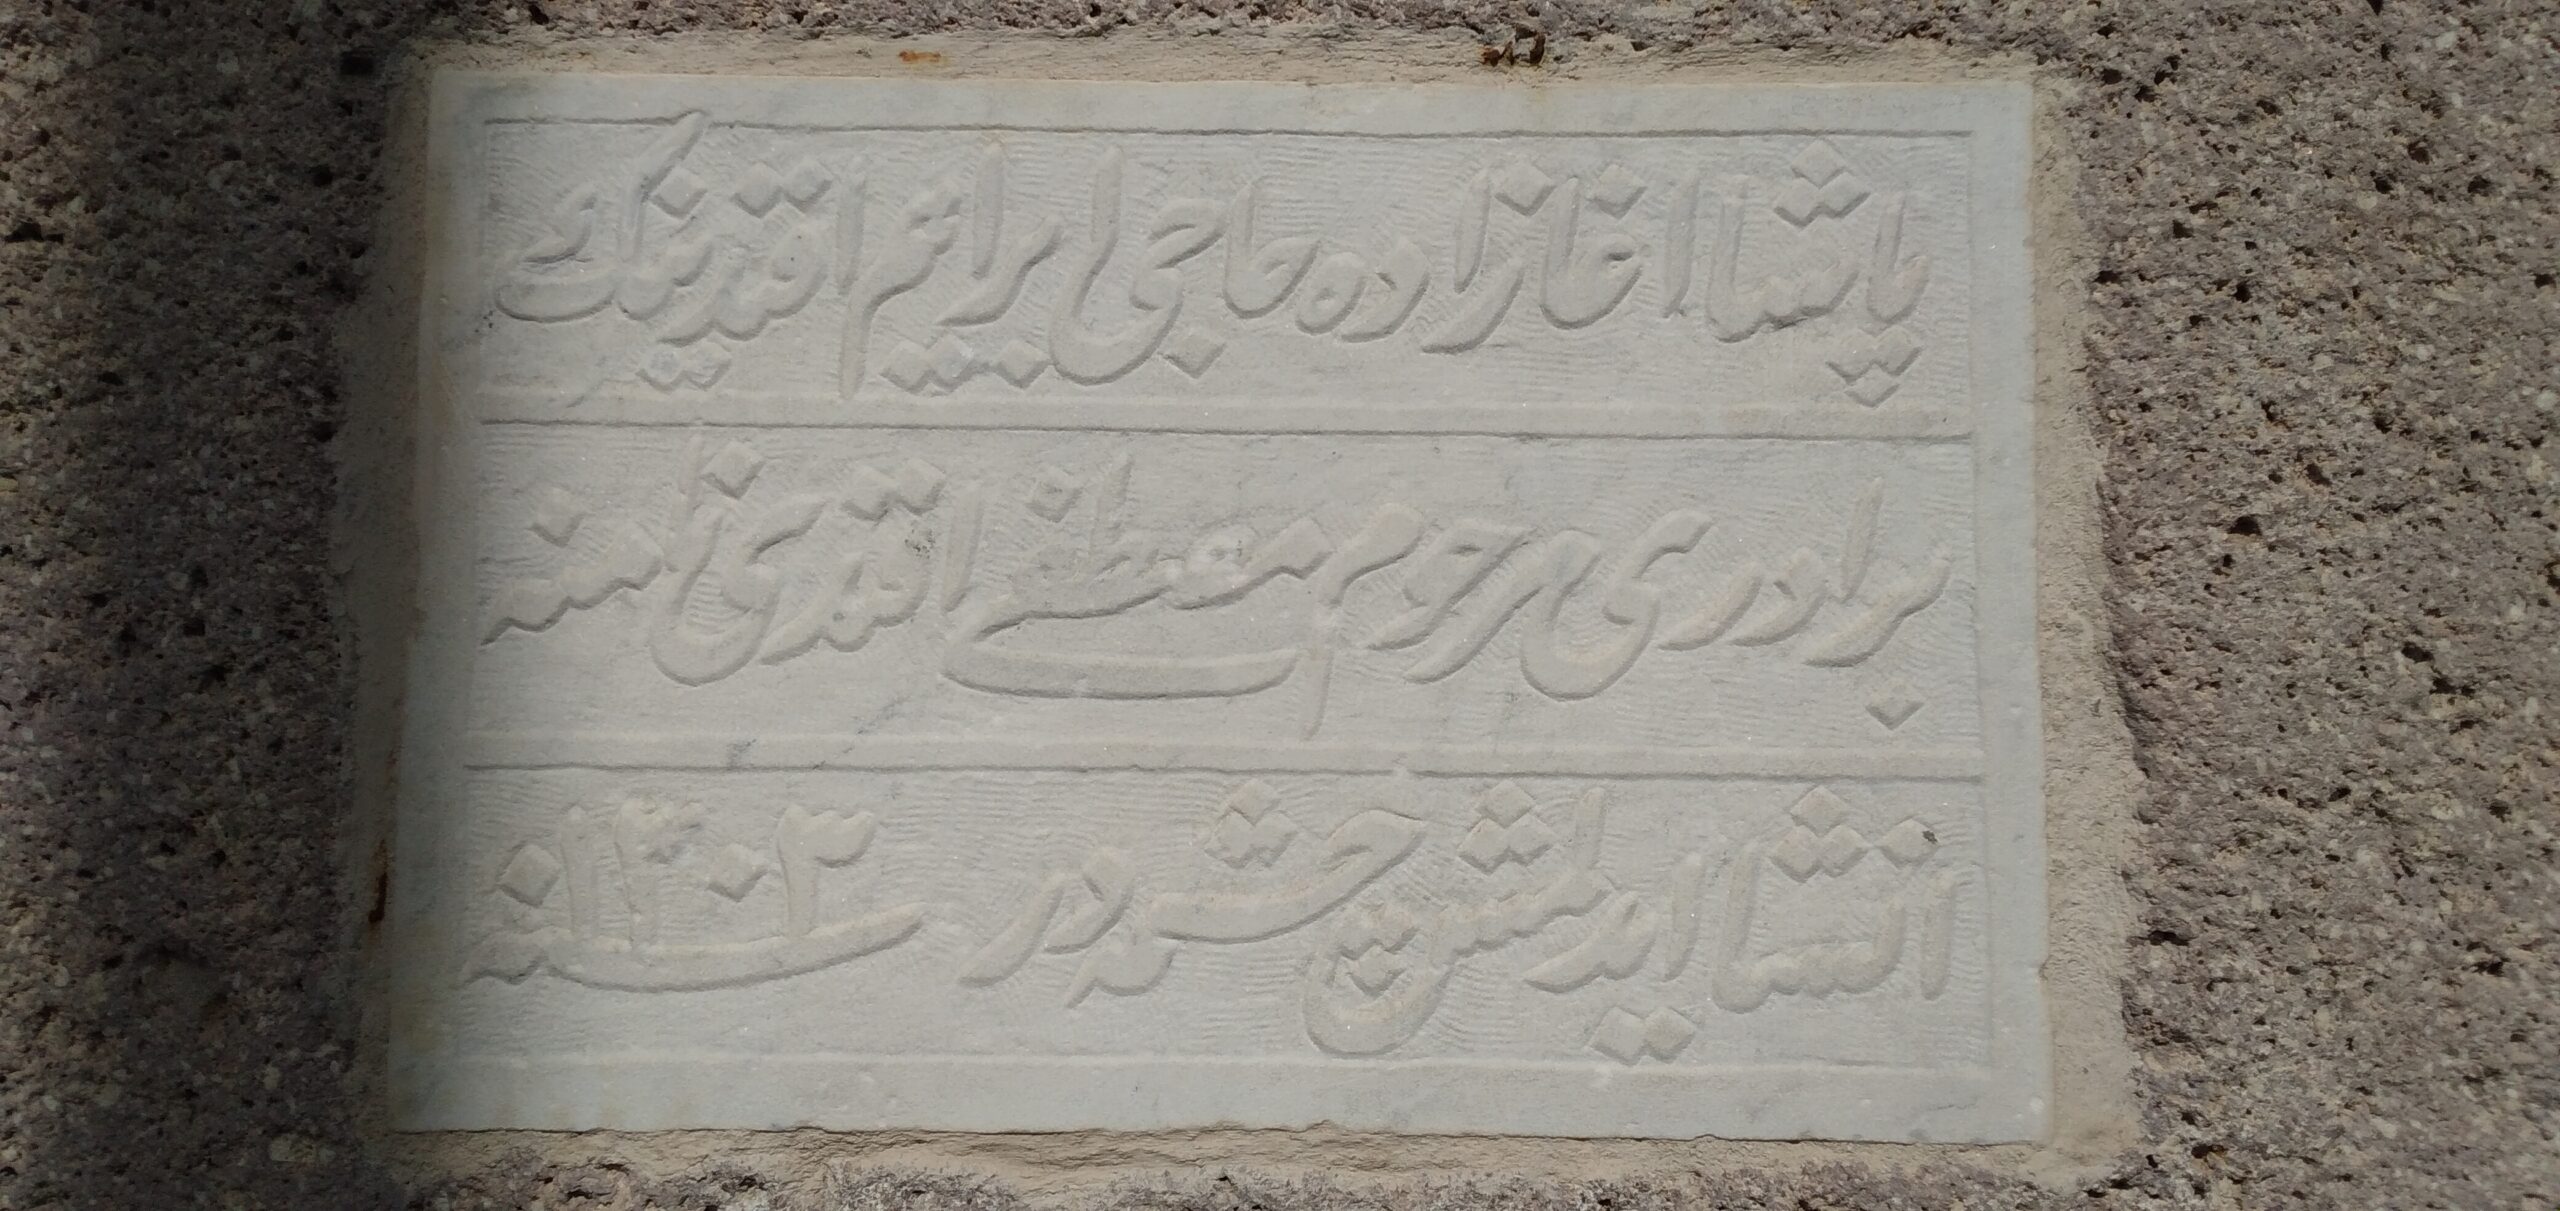 پاشا اغازاده حاجی ابراهیم افندینك
برادری مرحوم مصطفی افندی نامنه
انشا ایدلمش چشمه در سنه ١٣٠٣